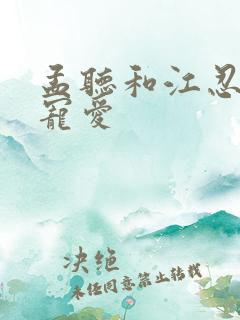 孟聽和江忍
寵愛
决绝
未经同意禁止转载